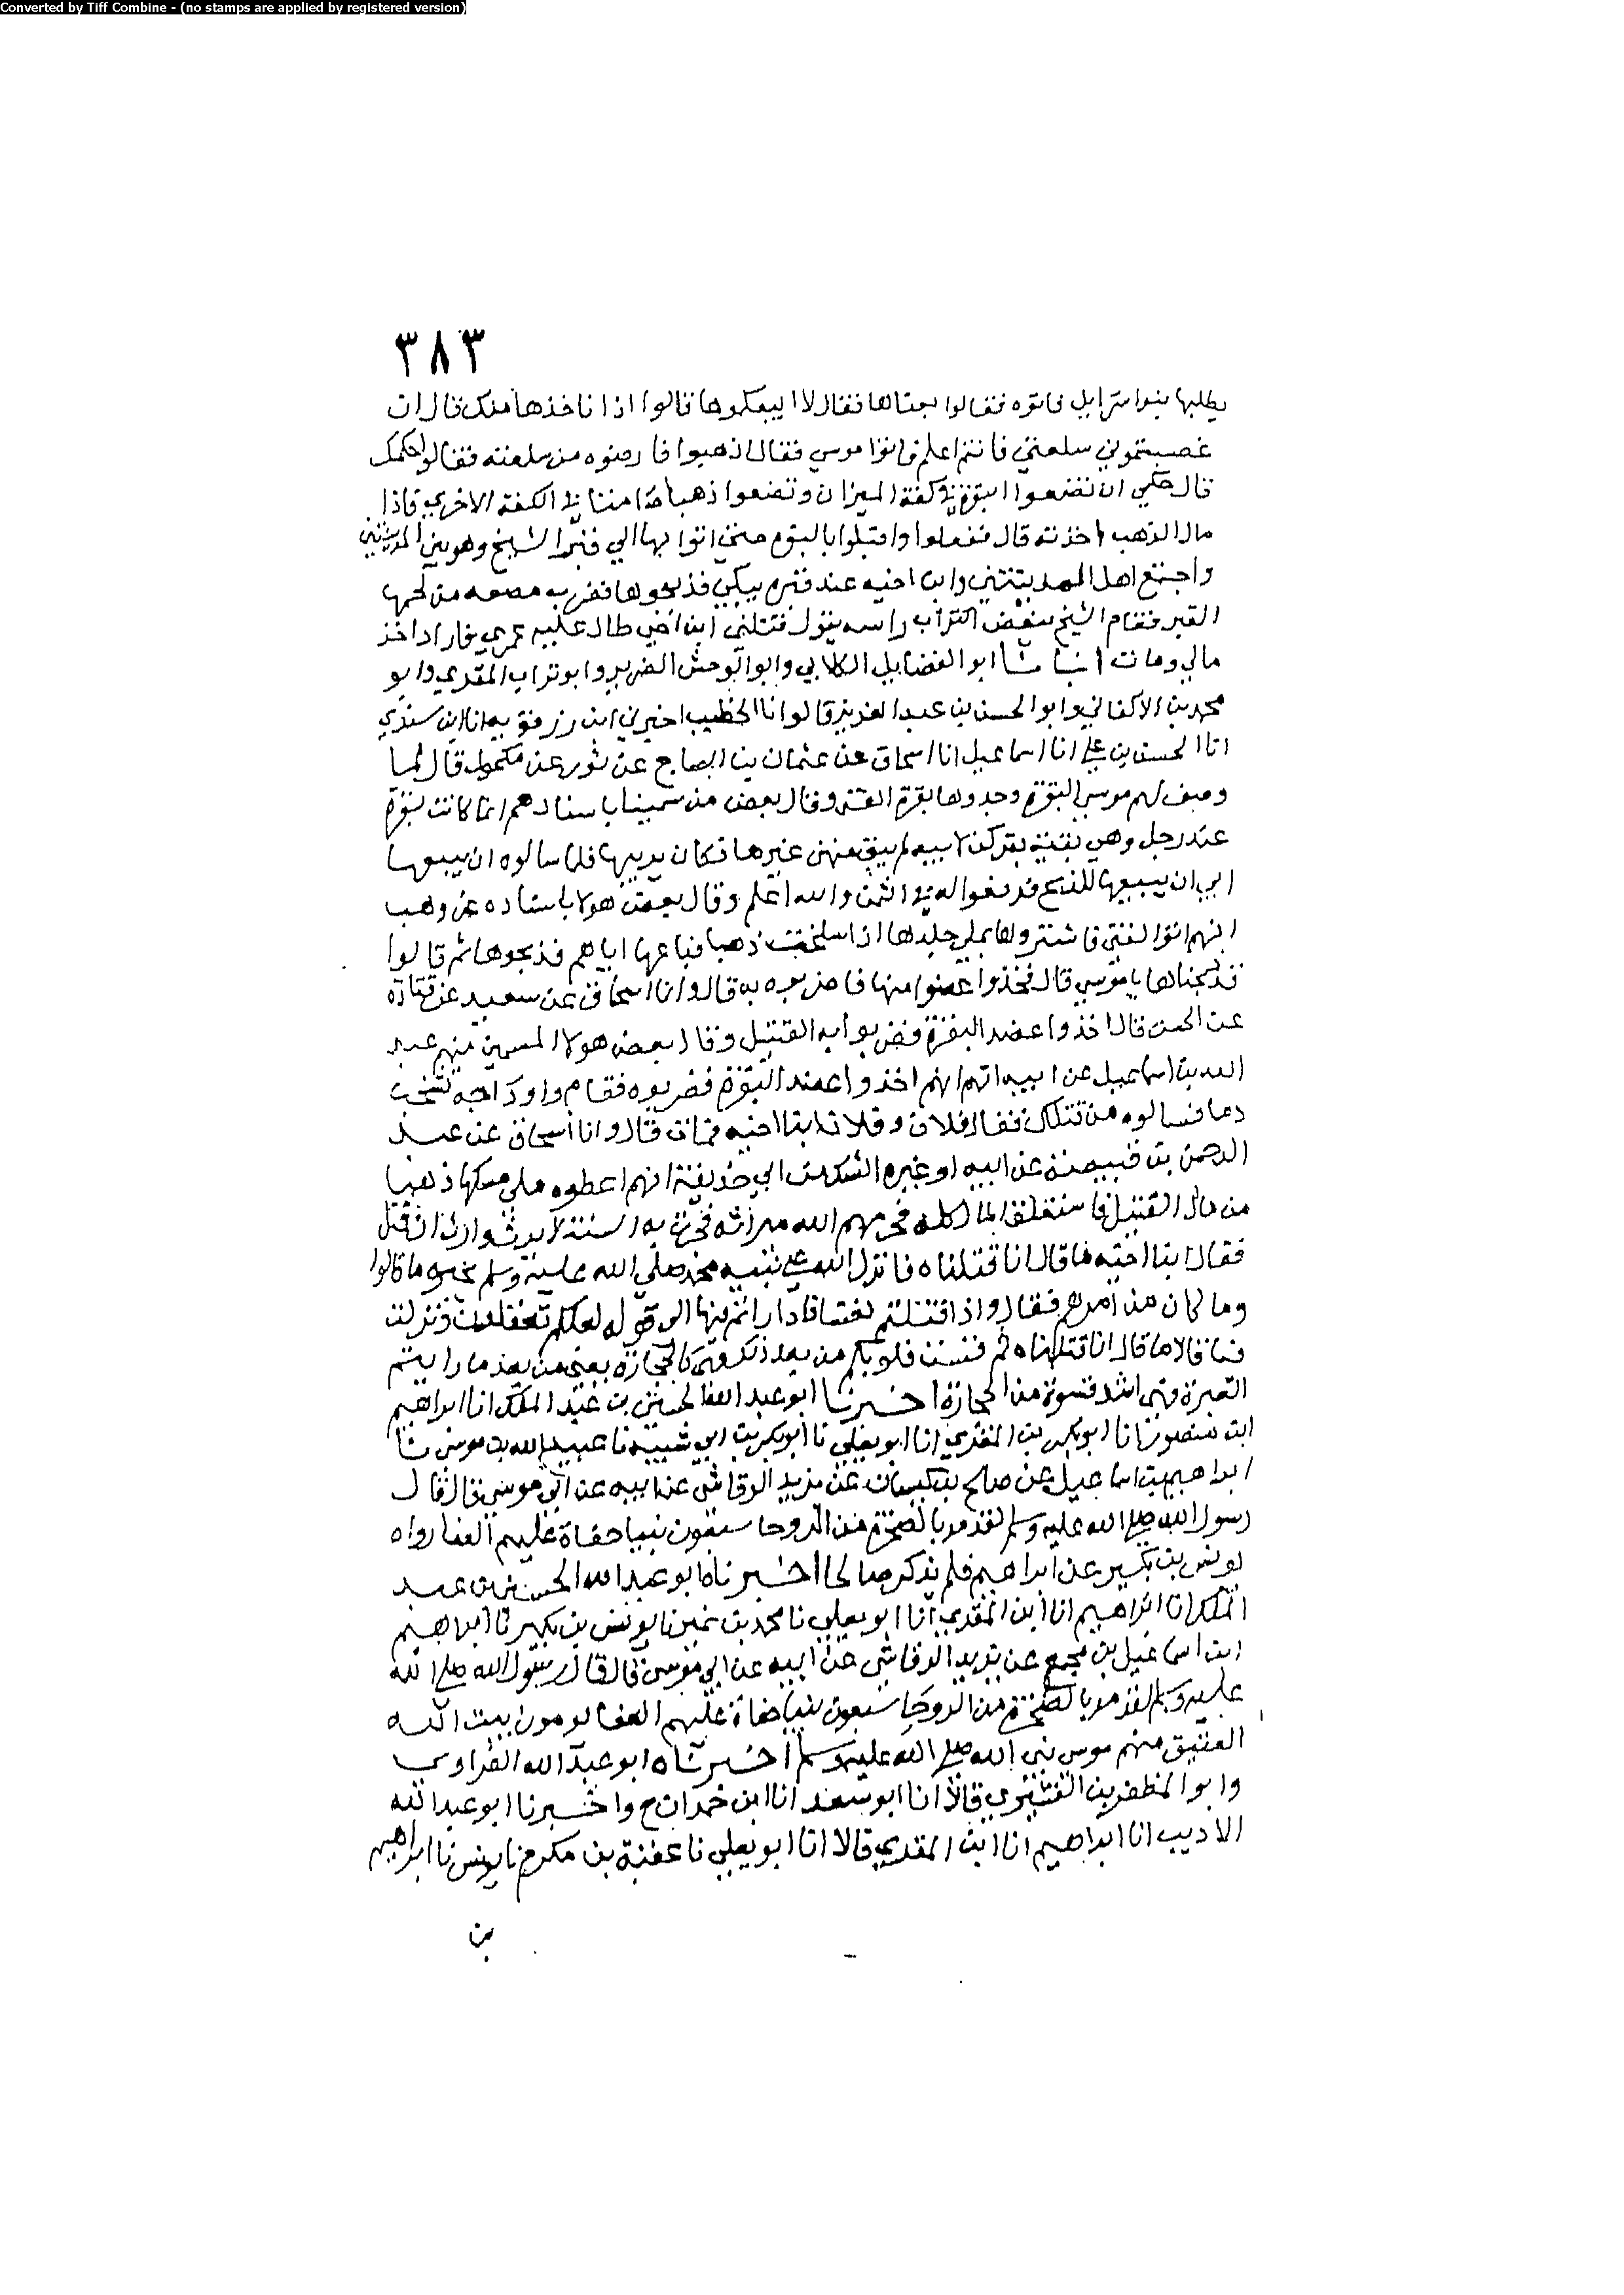 Converted by Tiff Combine - (no stamps are applied by registered version)
٣٨٣
يطلبها بنوا سرايل فاتوه فقالوا بعناها فقال لا ابيعكموها قالوا اذا ناخذها منك قال ان
غصبتموني سلعتي فانتم اعلم فاتوا موسى فقال اذهبوا فارضوه من سلعته فقالوا حكمك
قال حكمي ان تضعوا البقرة في كفة الميزان وتضعوا ذهبا صامتا في الكفة الاخرى فاذا
مال الذهب اخذته قال ففعلوا واقبلوا بالبقرة حتى اتوا بها الى قبر الشيخ وهو بين المدينتين
واجتمع اهل المدينتين وابن اخيه عند قبره يبكي فذبحوها فضرب ببضعة من لحمها
القبر فقام الشيخ ينفض التراب راسه يقول قتلني ابن اخي طال عليه عمري فاراد اخذ
مالي ومات انبانا ابو الفضايل الكلابي وابو الوحش الضرير وابو تراب المقري وابو
محمد بن الاكفاني وابو الحسن بن عبد العزيز قالوا انا الخطيب اخبرني ابن رزقويه انا ابن سندي
انا الحسن بن علي انا اسماعيل انا اسحاق عن عثمان بن الساج عن ثور عن مكحول قال لما
وصف لهم موسى البقرة وجدوها بقرة الفتى وقال بعض من سمينا باسنادهم انما كانت بقرة
عند رجل وهي بقية بقر كن لابيه لم يبق منهن غيرها فكان يربيها فلما سالوه ان يبيعها
ابى ان يبيعها للذبح فرفعوا له في الثمن والله اعلم وقال بعض هولا باسناده عن وهب
انهم اتوا الفتى فاشتروها بملى جلدها اذا سلخت ذهبا فباعها اياهم فذبحوها ثم قالوا
قد ذبحناها يا موسى قال فخذوا عضوا منها فاضربوه به قال وانا اسحاق عن سعيد عن قتادة
عن الحسن قال اخذوا عضد البقرة فضربوا به القتيل وقال بعض هولا المسمين منهم عبد
الله بن اسماعيل عن ابيه انهم اخذوا عضد البقرة فضربوه فقام واوداجه تشخب
دما فسالوه من قتلك فقال فلان وفلان ابنا اخيه فمات قال وانا اسحاق عن عبد
الرحمن بن قبيصة عن ابيه او غيره الشك من ابي حذيفة انهم اعطوه ملى مسكها ذهبا
من مال القتيل فاستغلقا المال كله فحرمهم الله ميراثه فجرت به السنة لا يرثوا وان قتل
فقال ابنا اخيه ما قال انا قتلناه فانزل الله على نبيه محمد صلى الله عليه وسلم بخبره ما قالوا
وما كان من امرهم فقال واذ قتلتم نفسا فادارأتم فيها الى قوله لعلكم تعقلون ونزلت
فيما قالا ما قال انا قتلناه ثم قست قلوبكم من بعد ذلك فهي كالحجارة يعني من بعد ما رايتم
العبرة فهي اشد قسوة من الحجارة اخبرنا ابو عبد الله الحسين بن عبد الملك انا ابراهيم
ابن منصور انا ابو بكر بن المقري انا ابو يعلى نا ابو بكر بن ابي شيبة نا عبيد الله بن موسى نا
ابراهيم بن اسماعيل عن صالح بن كيسان عن يزيد الرقاشي عن ابيه عن ابي موسى قال قال
رسول الله صلى الله عليه وسلم لقد مر بالصخرة من الروحا سبعون نبيا حفاة عليهم العبا رواه
يونس بن بكير عن ابراهيم فلم يذكر صالحا اخبرناه ابو عبد الله الحسين بن عبد
الملك انا ابراهيم انا ابن المقري انا ابو يعلى نا محمد بن نمير نا يونس بن بكير نا ابراهيم
ابن اسماعيل بن مجمع عن يزيد الرقاشي عن ابيه عن ابي موسى قال قال رسول الله صلى الله
عليه وسلم لقد مر بالصخرة من الروحا سبعون نبيا حفاة عليهم العبا يومون بيت الله
العتيق منهم موسى نبي الله صلى الله عليه وسلم اخبرناه ابو عبد الله الفراوي
وابو المظفر بن القشيري قالا انا ابو سعد انا ابن حمدان ح واخبرنا ابو عبد الله
الاديب انا ابراهيم انا ابن المقري قالا انا ابو يعلى نا عقبة بن مكرم نا يونس نا ابراهيم
بن